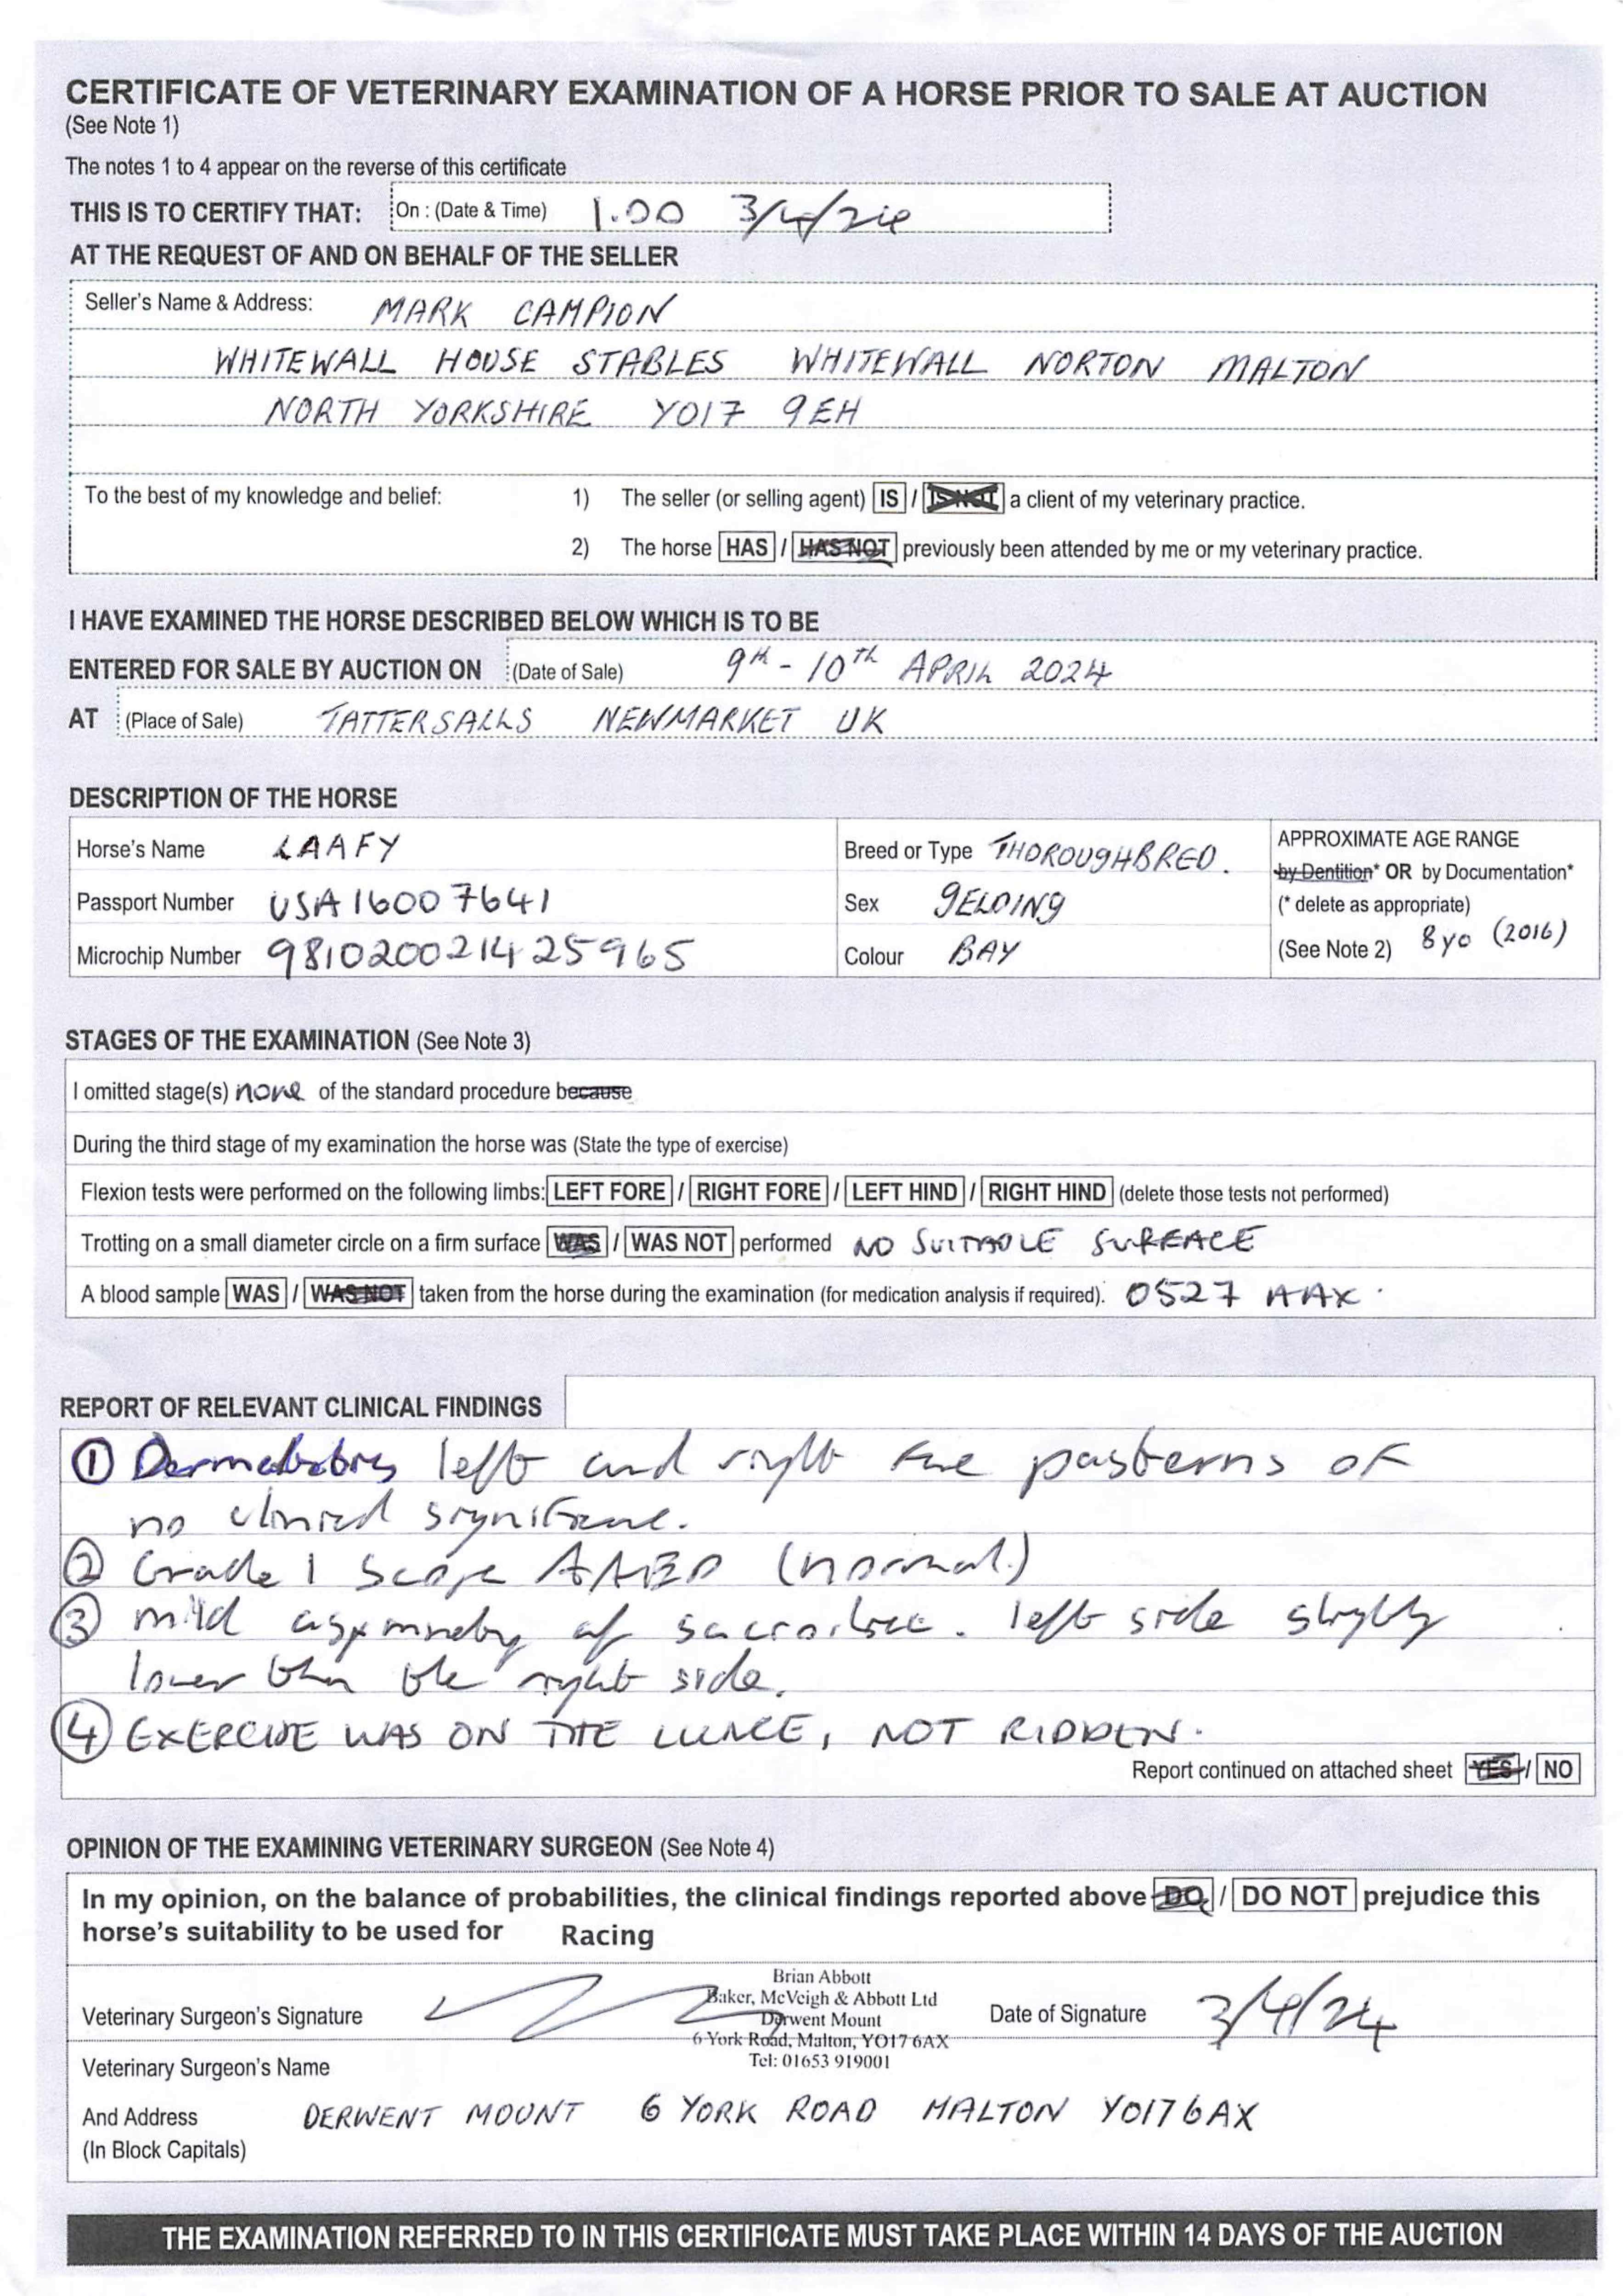 CERTIFICATE OF VETERINARY EXAMINATION OF A HORSE PRIOR TO SALE AT AUCTION
(See Note 1)
The notes 1 to 4 appear on the reverse of this certificate
THIS IS TO CERTIFY THAT: On : (Date & Time) 1.00 3/4/24
AT THE REQUEST OF AND ON BEHALF OF THE SELLER
Seller's Name & Address: MARK CAMPION
WHITEWALL HOUSE STABLES WHITEWALL NORTON MALTON
NORTH YORKSHIRE YO17 9EH
To the best of my knowledge and belief: 1) The seller (or selling agent) IS / IS NOT a client of my veterinary practice.
2) The horse HAS / HAS NOT previously been attended by me or my veterinary practice.
I HAVE EXAMINED THE HORSE DESCRIBED BELOW WHICH IS TO BE
ENTERED FOR SALE BY AUCTION ON (Date of Sale) 9th - 10th APRIL 2024
AT (Place of Sale) TATTERSALLS NEWMARKET UK
DESCRIPTION OF THE HORSE
Horse's Name LAAFY
Passport Number USA16007641
Microchip Number 981020021425965
Breed or Type THOROUGHBRED.
Sex GELDING
Colour BAY
APPROXIMATE AGE RANGE
by Dentition* OR by Documentation*
(* delete as appropriate)
(See Note 2) 8yo (2016)
STAGES OF THE EXAMINATION (See Note 3)
I omitted stage(s) none of the standard procedure because
During the third stage of my examination the horse was (State the type of exercise)
Flexion tests were performed on the following limbs: LEFT FORE / RIGHT FORE / LEFT HIND / RIGHT HIND (delete those tests not performed)
Trotting on a small diameter circle on a firm surface WAS / WAS NOT performed NO SUITABLE SURFACE
A blood sample WAS / WAS NOT taken from the horse during the examination (for medication analysis if required). 0527 AAX.
REPORT OF RELEVANT CLINICAL FINDINGS
① left and right fore pasterns of
no clinical significance.
② Grade 1 Scope (normal)
③ mild asymmetry of sacroiliac. left side slightly
lower than the right side.
④ EXERCISE WAS ON THE LUNGE, NOT RIDDEN.
Report continued on attached sheet YES / NO
OPINION OF THE EXAMINING VETERINARY SURGEON (See Note 4)
In my opinion, on the balance of probabilities, the clinical findings reported above DO / DO NOT prejudice this
horse's suitability to be used for Racing
Brian Abbott
Baker, McVeigh & Abbott Ltd
Derwent Mount
6 York Road, Malton, YO17 6AX
Tel: 01653 919001
Veterinary Surgeon's Signature
Date of Signature 3/4/24
Veterinary Surgeon's Name
And Address DERWENT MOUNT 6 YORK ROAD MALTON YO17 6AX
(In Block Capitals)
THE EXAMINATION REFERRED TO IN THIS CERTIFICATE MUST TAKE PLACE WITHIN 14 DAYS OF THE AUCTION